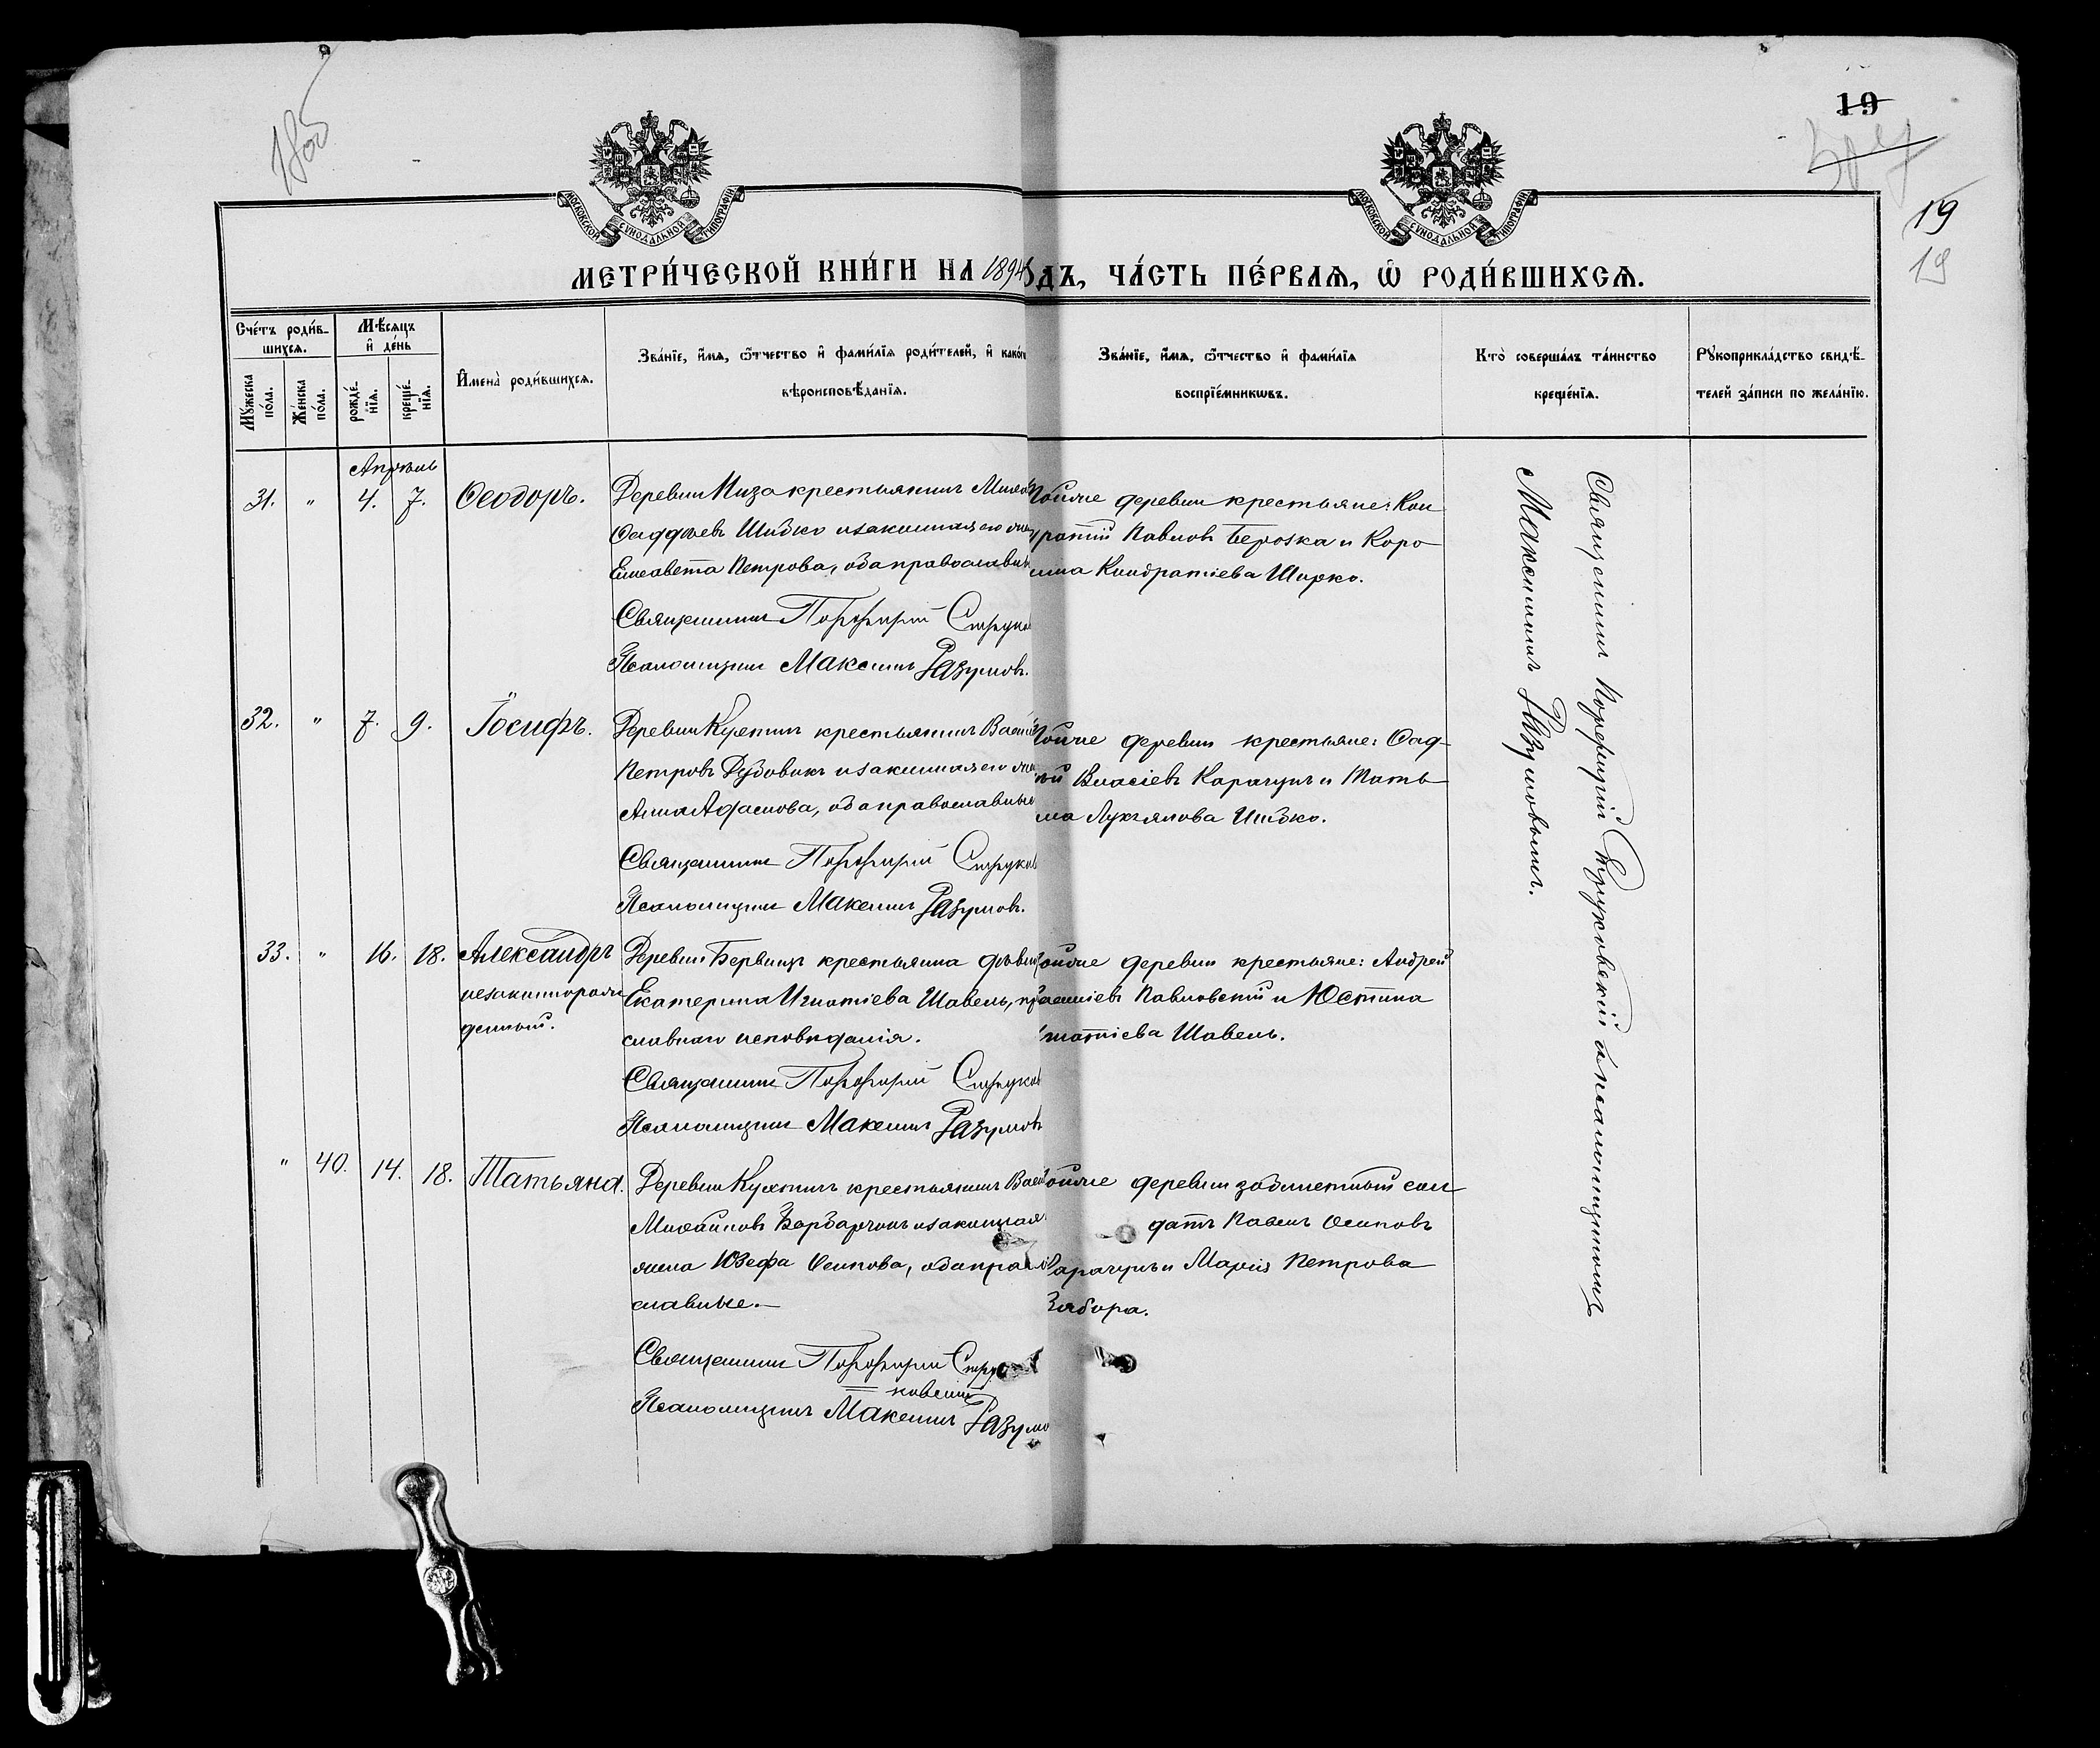 19
19
19
МОСКОВСКОЙ СѴНОДАЛЬНОЙ ТИПОГРАФІИ
МОСКОВСКОЙ СѴНОДАЛЬНОЙ ТИПОГРАФІИ
МЕТРИ́ЧЕСКОЙ КНИ́ГИ НА 1894
ОДЪ, ЧА́СТЬ ПЕ́РВАѦ, Ѡ҆ РОДИ́ВШИХСѦ.
Сче́тъ роди́в-
шихсѧ.
Мꙋ́жеска по́ла.
Же́нска по́ла.
Мѣ́сѧцъ
и҆ де́нь
рожде́-
нїѧ.
креще́-
нїѧ.
И҆мена̀ роди́вшихсѧ.
Зва́нїе, и҆́мѧ, ѻ҆́тчество и҆ фами́лїѧ роди́телей, и҆ како́гѡ
вѣроисповѣ́данїѧ.
Зва́нїе, и҆́мѧ, ѻ҆́тчество и҆ фами́лїѧ
воспрїе́мникѡвъ.
Кто̀ соверша́лъ та́инство
креще́нїѧ.
Рꙋкоприкла́дство свидѣ́-
телей за́писи по жела́нїю.
Апрѣль
31. " 4. 7. Ѳеодоръ.
Деревни Низа крестьянинъ
Ѳаддѣевъ Шибко и законная его жена
Елисавета Петрова, оба православн
Священникъ Порфирій Струков
Псаломщикъ Максимъ Разумовъ.
тойже деревни крестьяне: Кон
ратій Павловъ Берозка и Каро
лина Кондратіева Ширко.
32. " 7. 9. Іосифъ.
Деревни Кухтичъ крестьянинъ Васил
Петровъ Дубовикъ и законная его жена
Анна Адамова, оба православные
Священникъ Порфирій Струков
Псаломщикъ Максимъ Разумовъ.
тойже деревни крестьяне: Ѳад-
ѣй Власіевъ Карачунъ и Тать-
на Лукъянова Шибко.
33. " 16. 18. Александръ
незаконнорож
денный.
Деревни крестьянка дѣвица
Екатерина Игнатіева Шавель, пр
славнаго исповѣданія.
Священникъ Порфирій Струков
Псаломщикъ Максимъ Разумовъ
тойже деревни крестьяне: Андрей
Павловскій и Юстина
гнатіева Шавель.
" 40. 14. 18. Татьяна.
Деревни Кухтичъ крестьянинъ Васил
Михайловъ и законная
жена Юзефа Осипова, оба право
славные.
Священникъ Порфирій Стру
ковскій
Псаломщикъ Максимъ Разумо
ойже деревни запасный сол
датъ Павелъ Осиповъ
Карачунъ и Марія Петрова
Забора.
Священникъ Порфирій Струковскій съ псаломщикомъ
Максимомъ Разумовымъ.